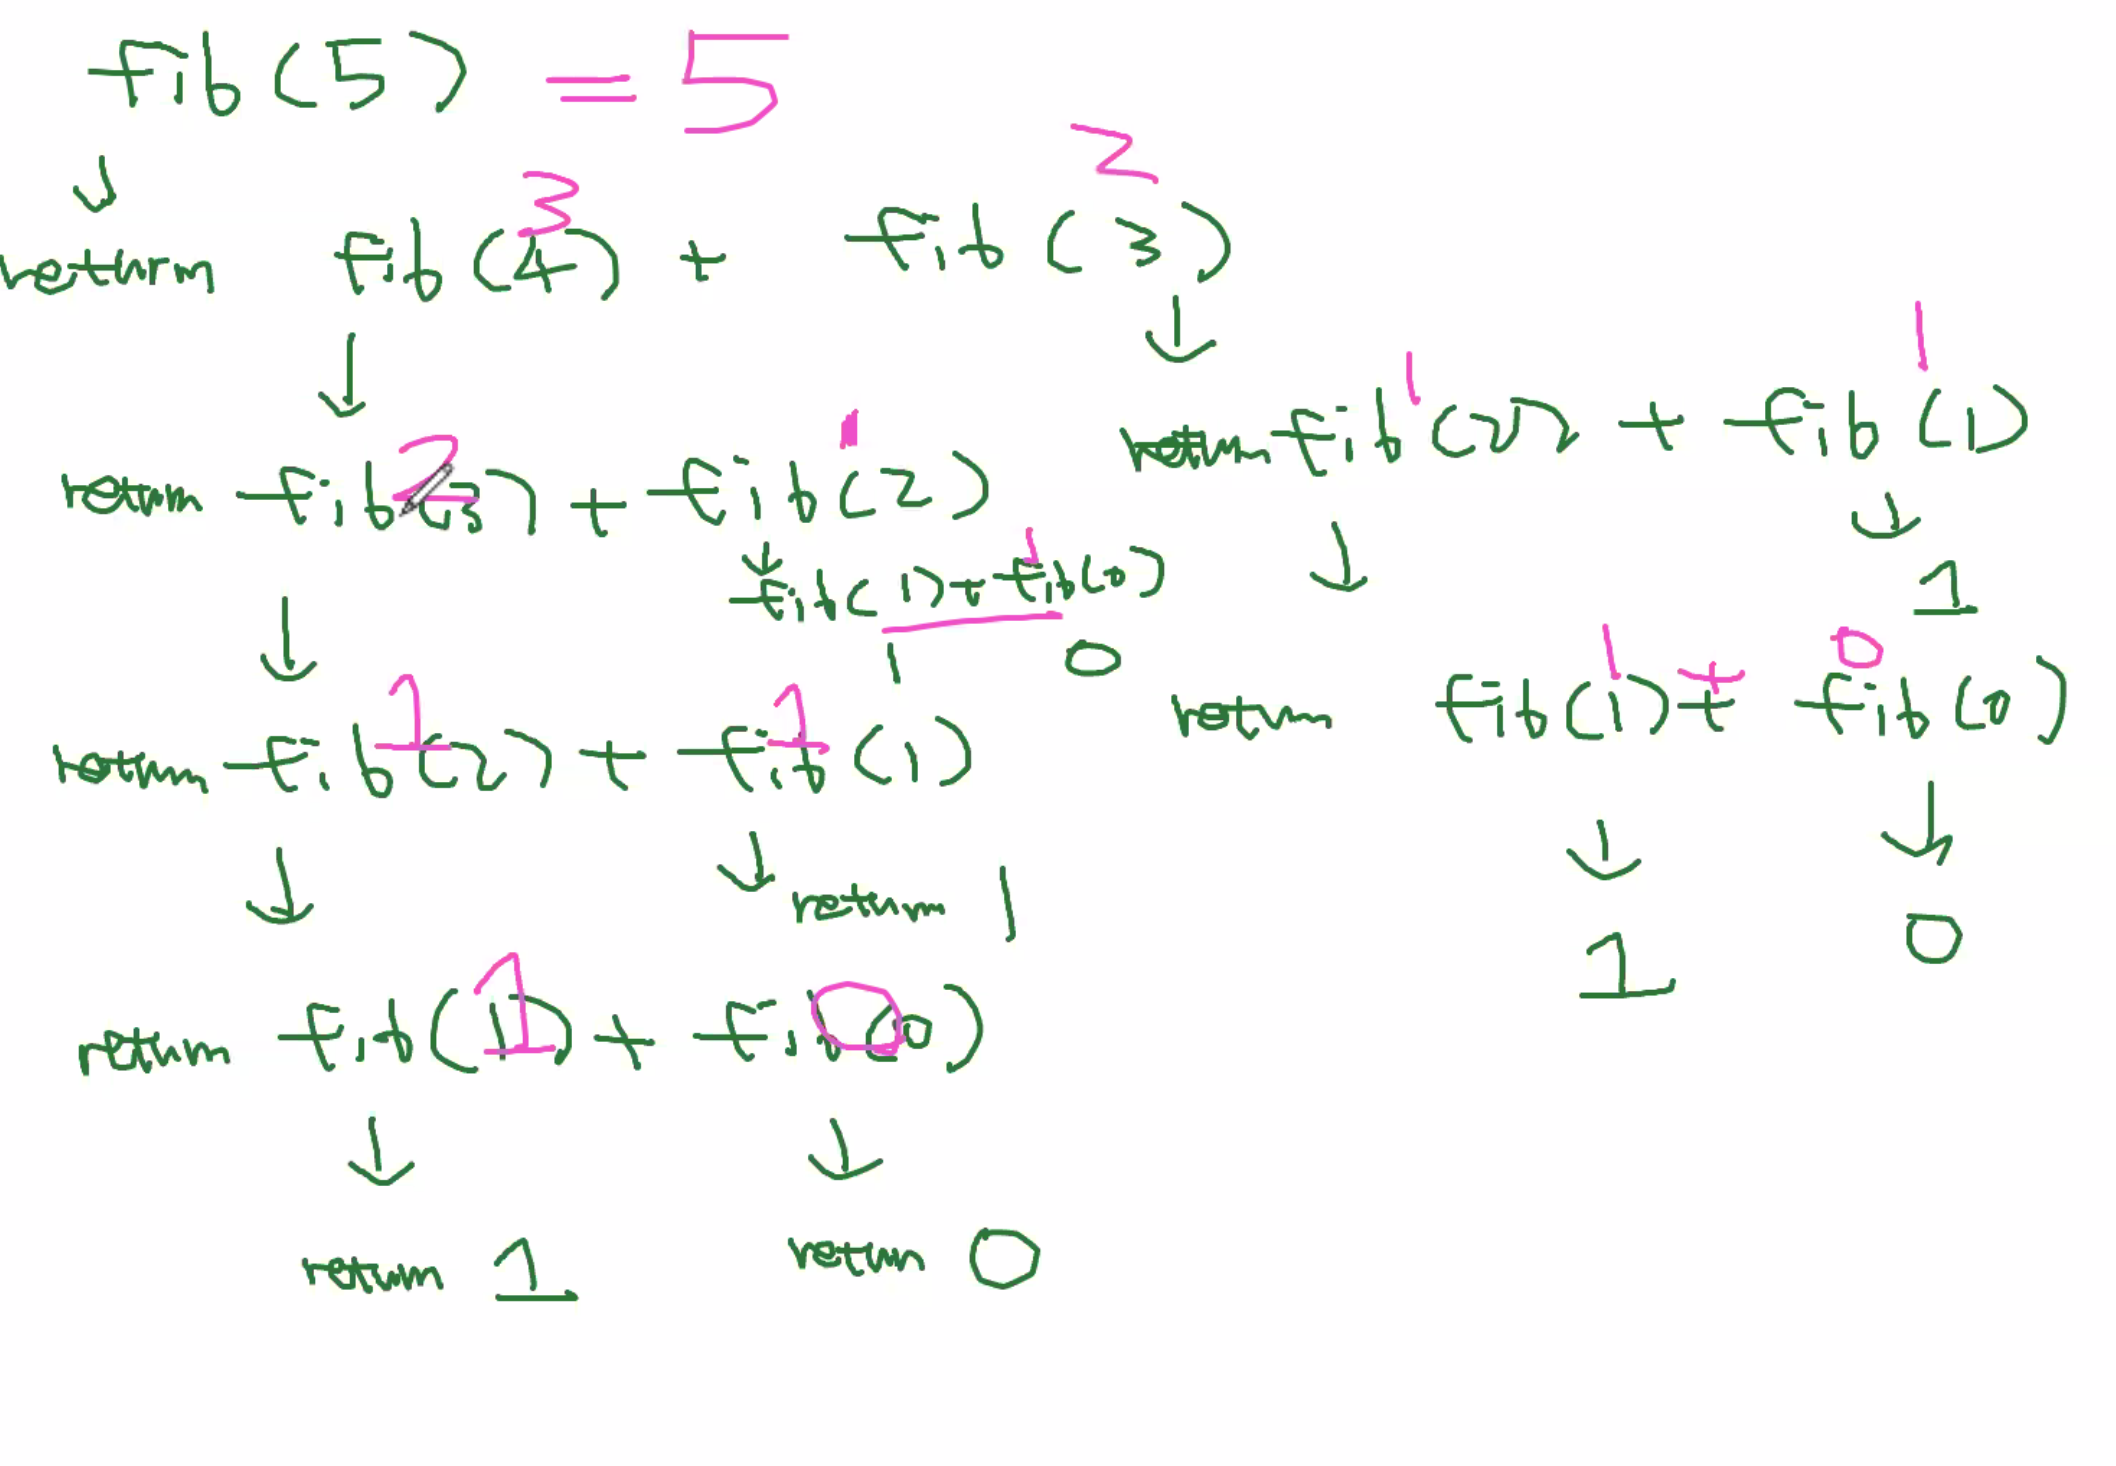 fib(5) = 5
3 2
return fib(4) + fib(3)
1 1
return fib(2) + fib(1)
2 1
return fib(3) + fib(2)
1
fib(1) + fib(0)
1 0
1
1 + 0
return fib(1) + fib(0)
1 1
return fib(2) + fib(1)
return 1
1 0
1 0
return fib(1) + fib(0)
return 1 return 0